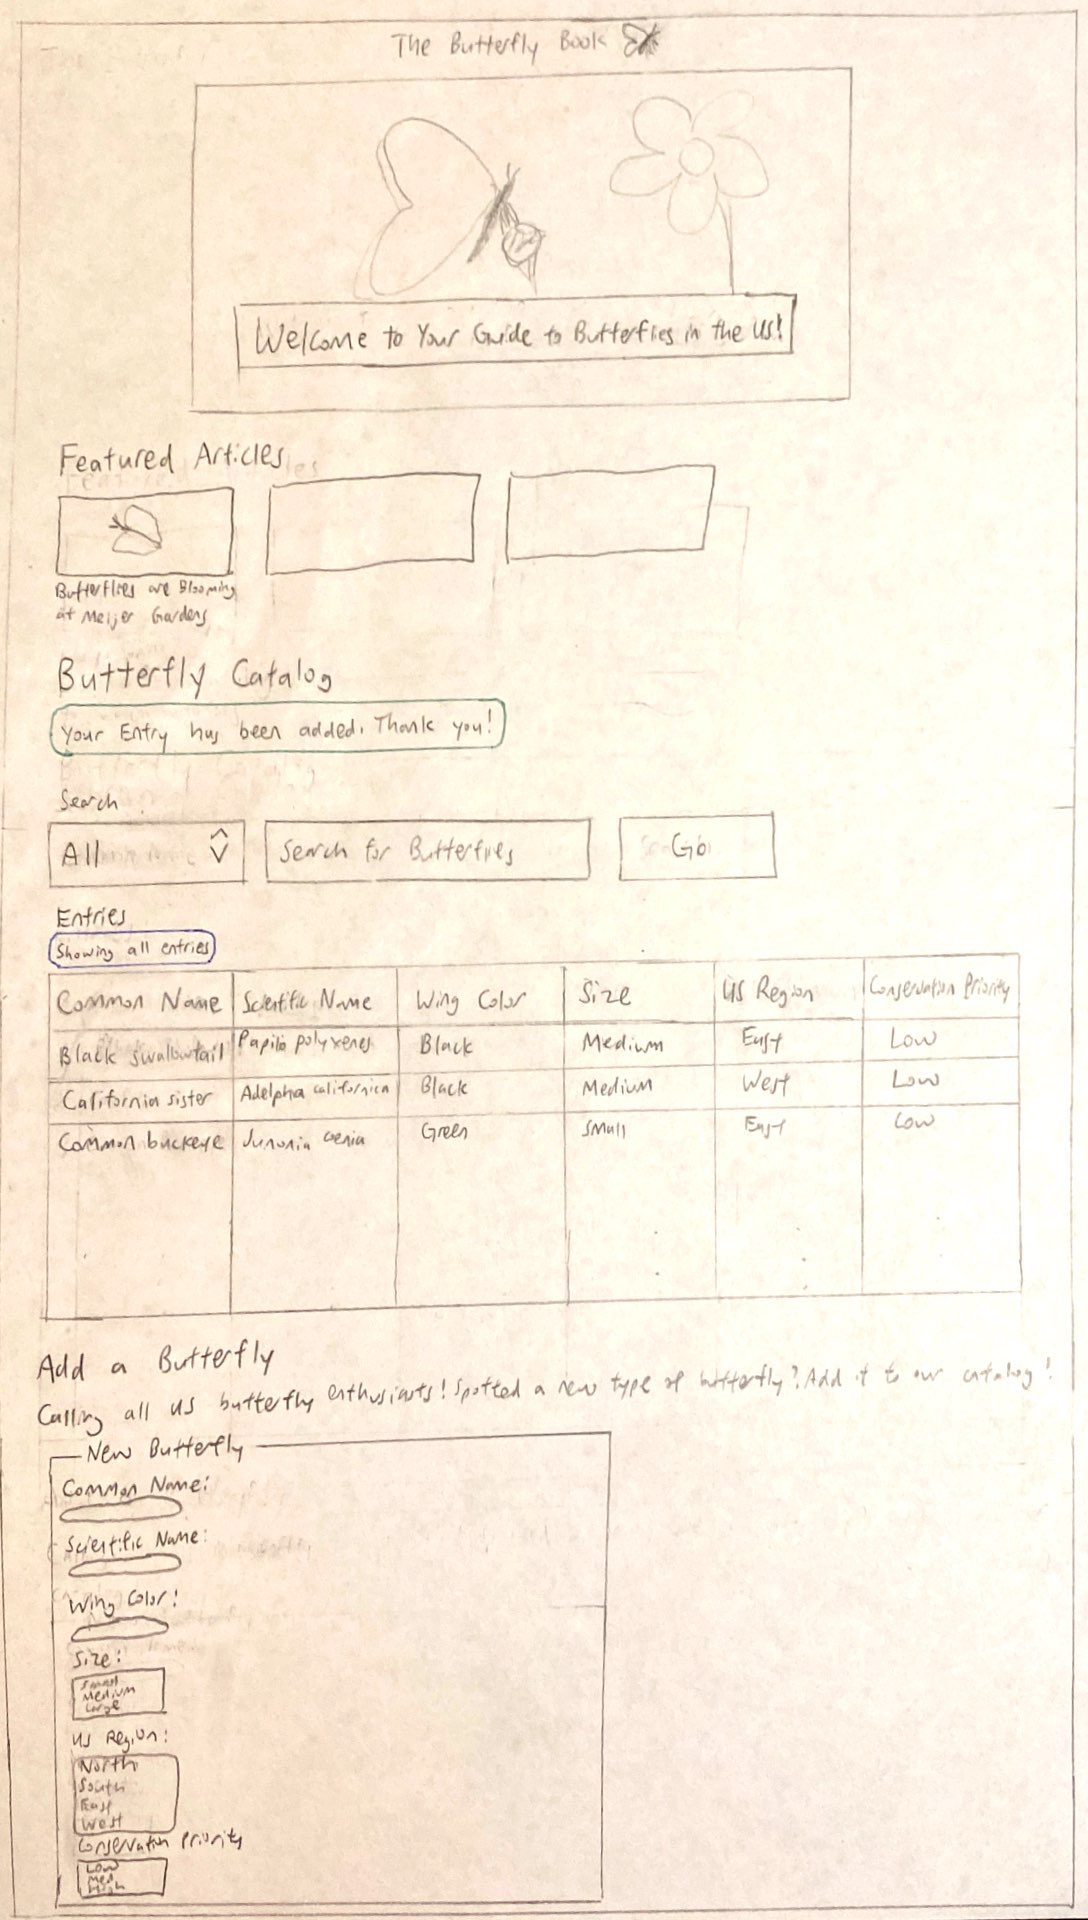 The Butterfly Book
Welcome to Your Guide to Butterflies in the US!
Featured Articles
Butterflies are Blooming
at Meijer Gardens
Butterfly Catalog
Your Entry has been added. Thank you!
Search
All
Search for Butterflies
Go
Entries
Showing all entries
Common Name Scientific Name Wing Color Size US Region Conservation Priority
Black swallowtail Papilio polyxenes Black Medium East Low
California sister Adelpha californica Black Medium West Low
Common buckeye Junonia coenia Green Small East Low
Add a Butterfly
Calling all US butterfly enthusiasts! Spotted a new type of butterfly? Add it to our catalog!
New Butterfly
Common Name:
Scientific Name:
Wing Color:
Size:
Small
Medium
Large
US Region:
North
South
East
West
Conservation Priority
Low
Med
High